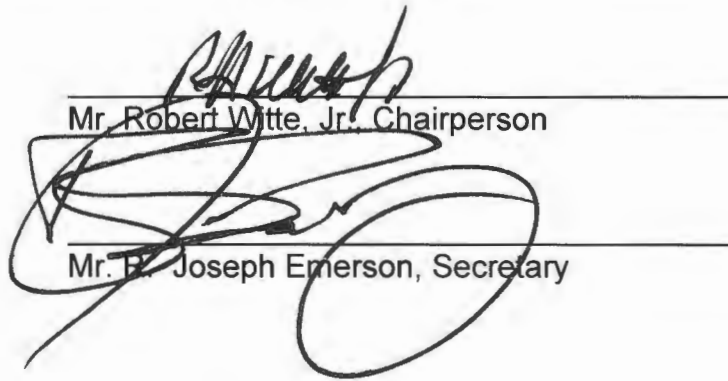 Mr. Robert Witte, Jr., Chairperson
Mr. R. Joseph Emerson, Secretary